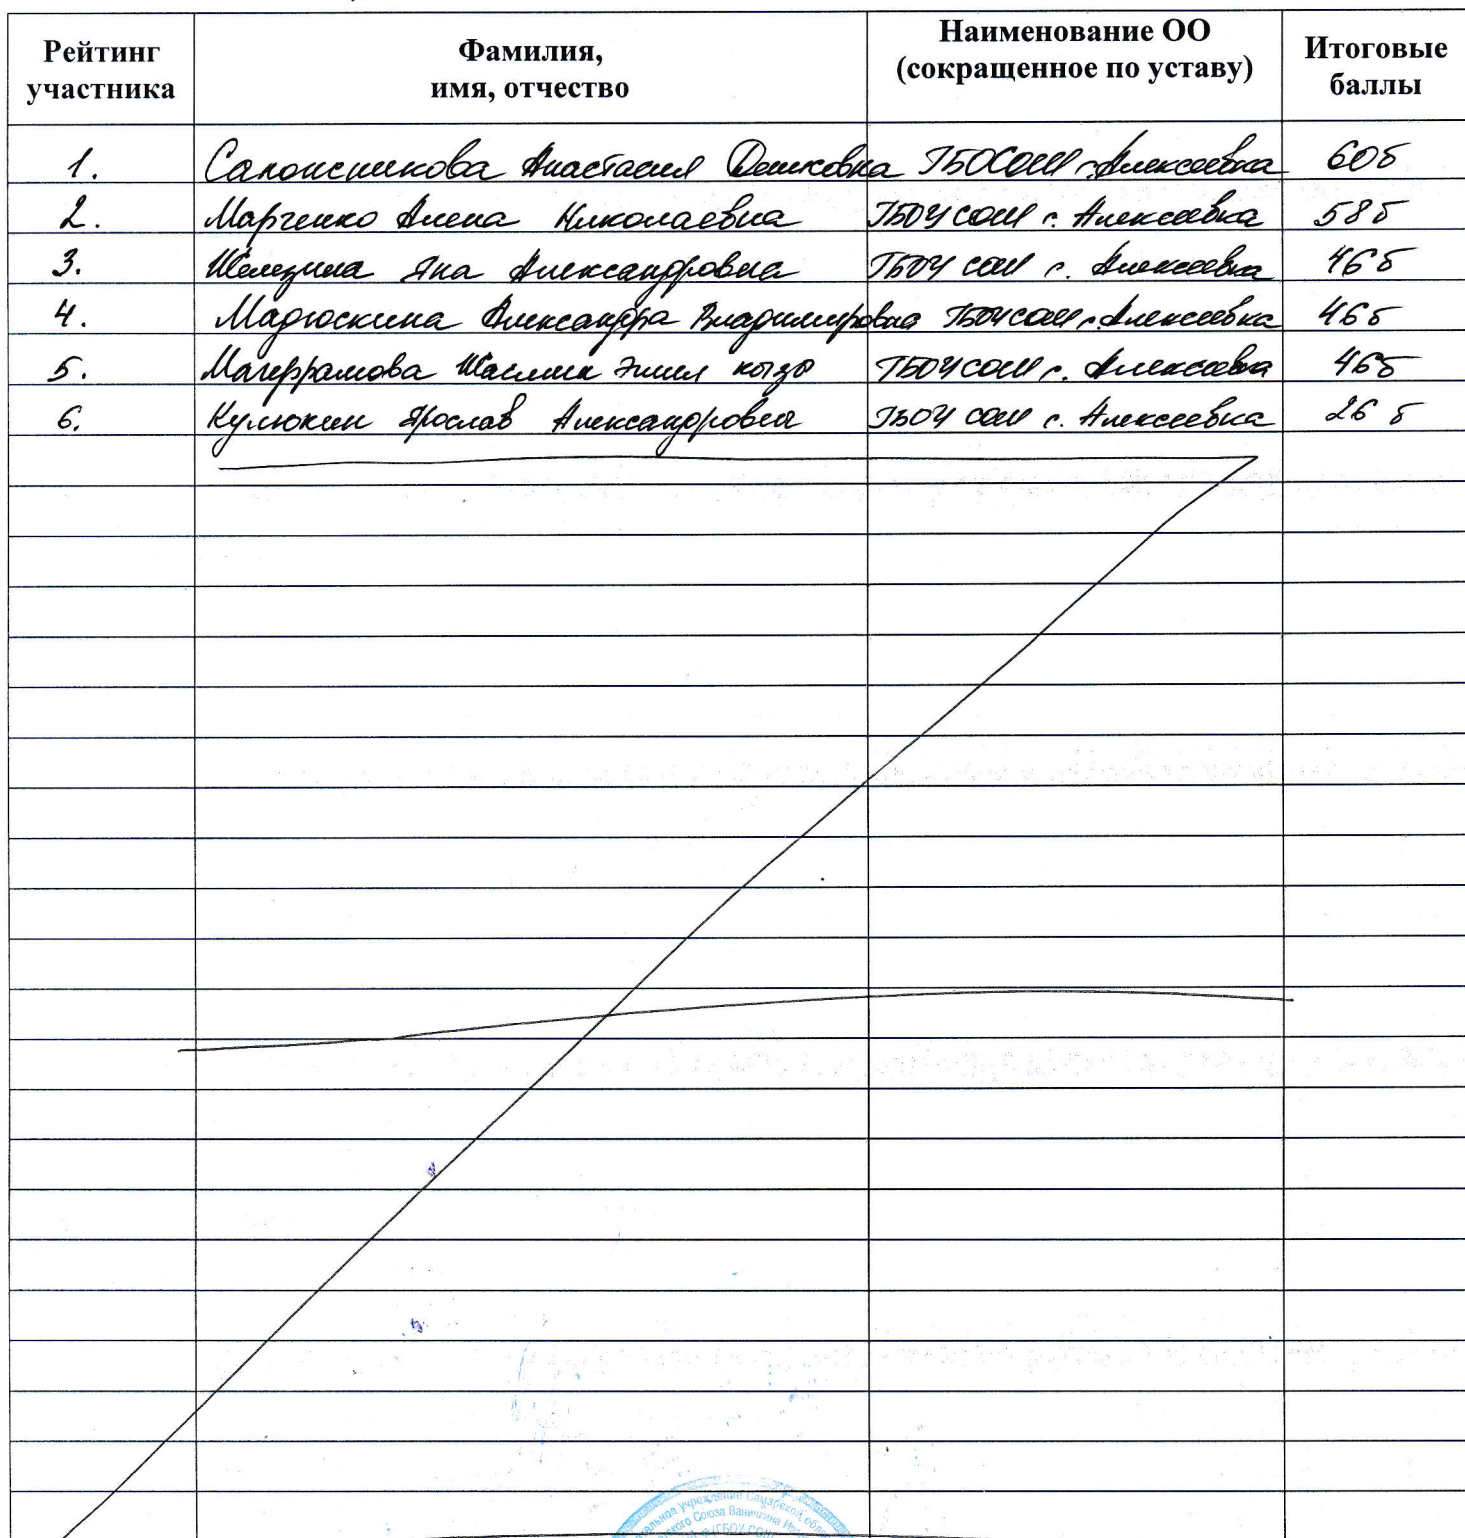 Рейтинг участника | Фамилия, имя, отчество | Наименование ОО (сокращенное по уставу) | Итоговые баллы
1. Сапожникова Анастасия ГБОСОШ с. Алексеевка 60б
2. Марченко Алена Николаевна ГБОУ СОШ с. Алексеевка 58б
3. Яна Александровна ГБОУ СОШ с. Алексеевка 46б
4. Мадюскина Александра Владимировна ГБОУ СОШ с. Алексеевка 46б
5. Магеррамова кызы ГБОУ СОШ с. Алексеевка 46б
6. Кулюкин Ярослав ГБОУ СОШ с. Алексеевка 26 б
учреждение Самарской
Союза Ваничкина
ГБОУ СОШ